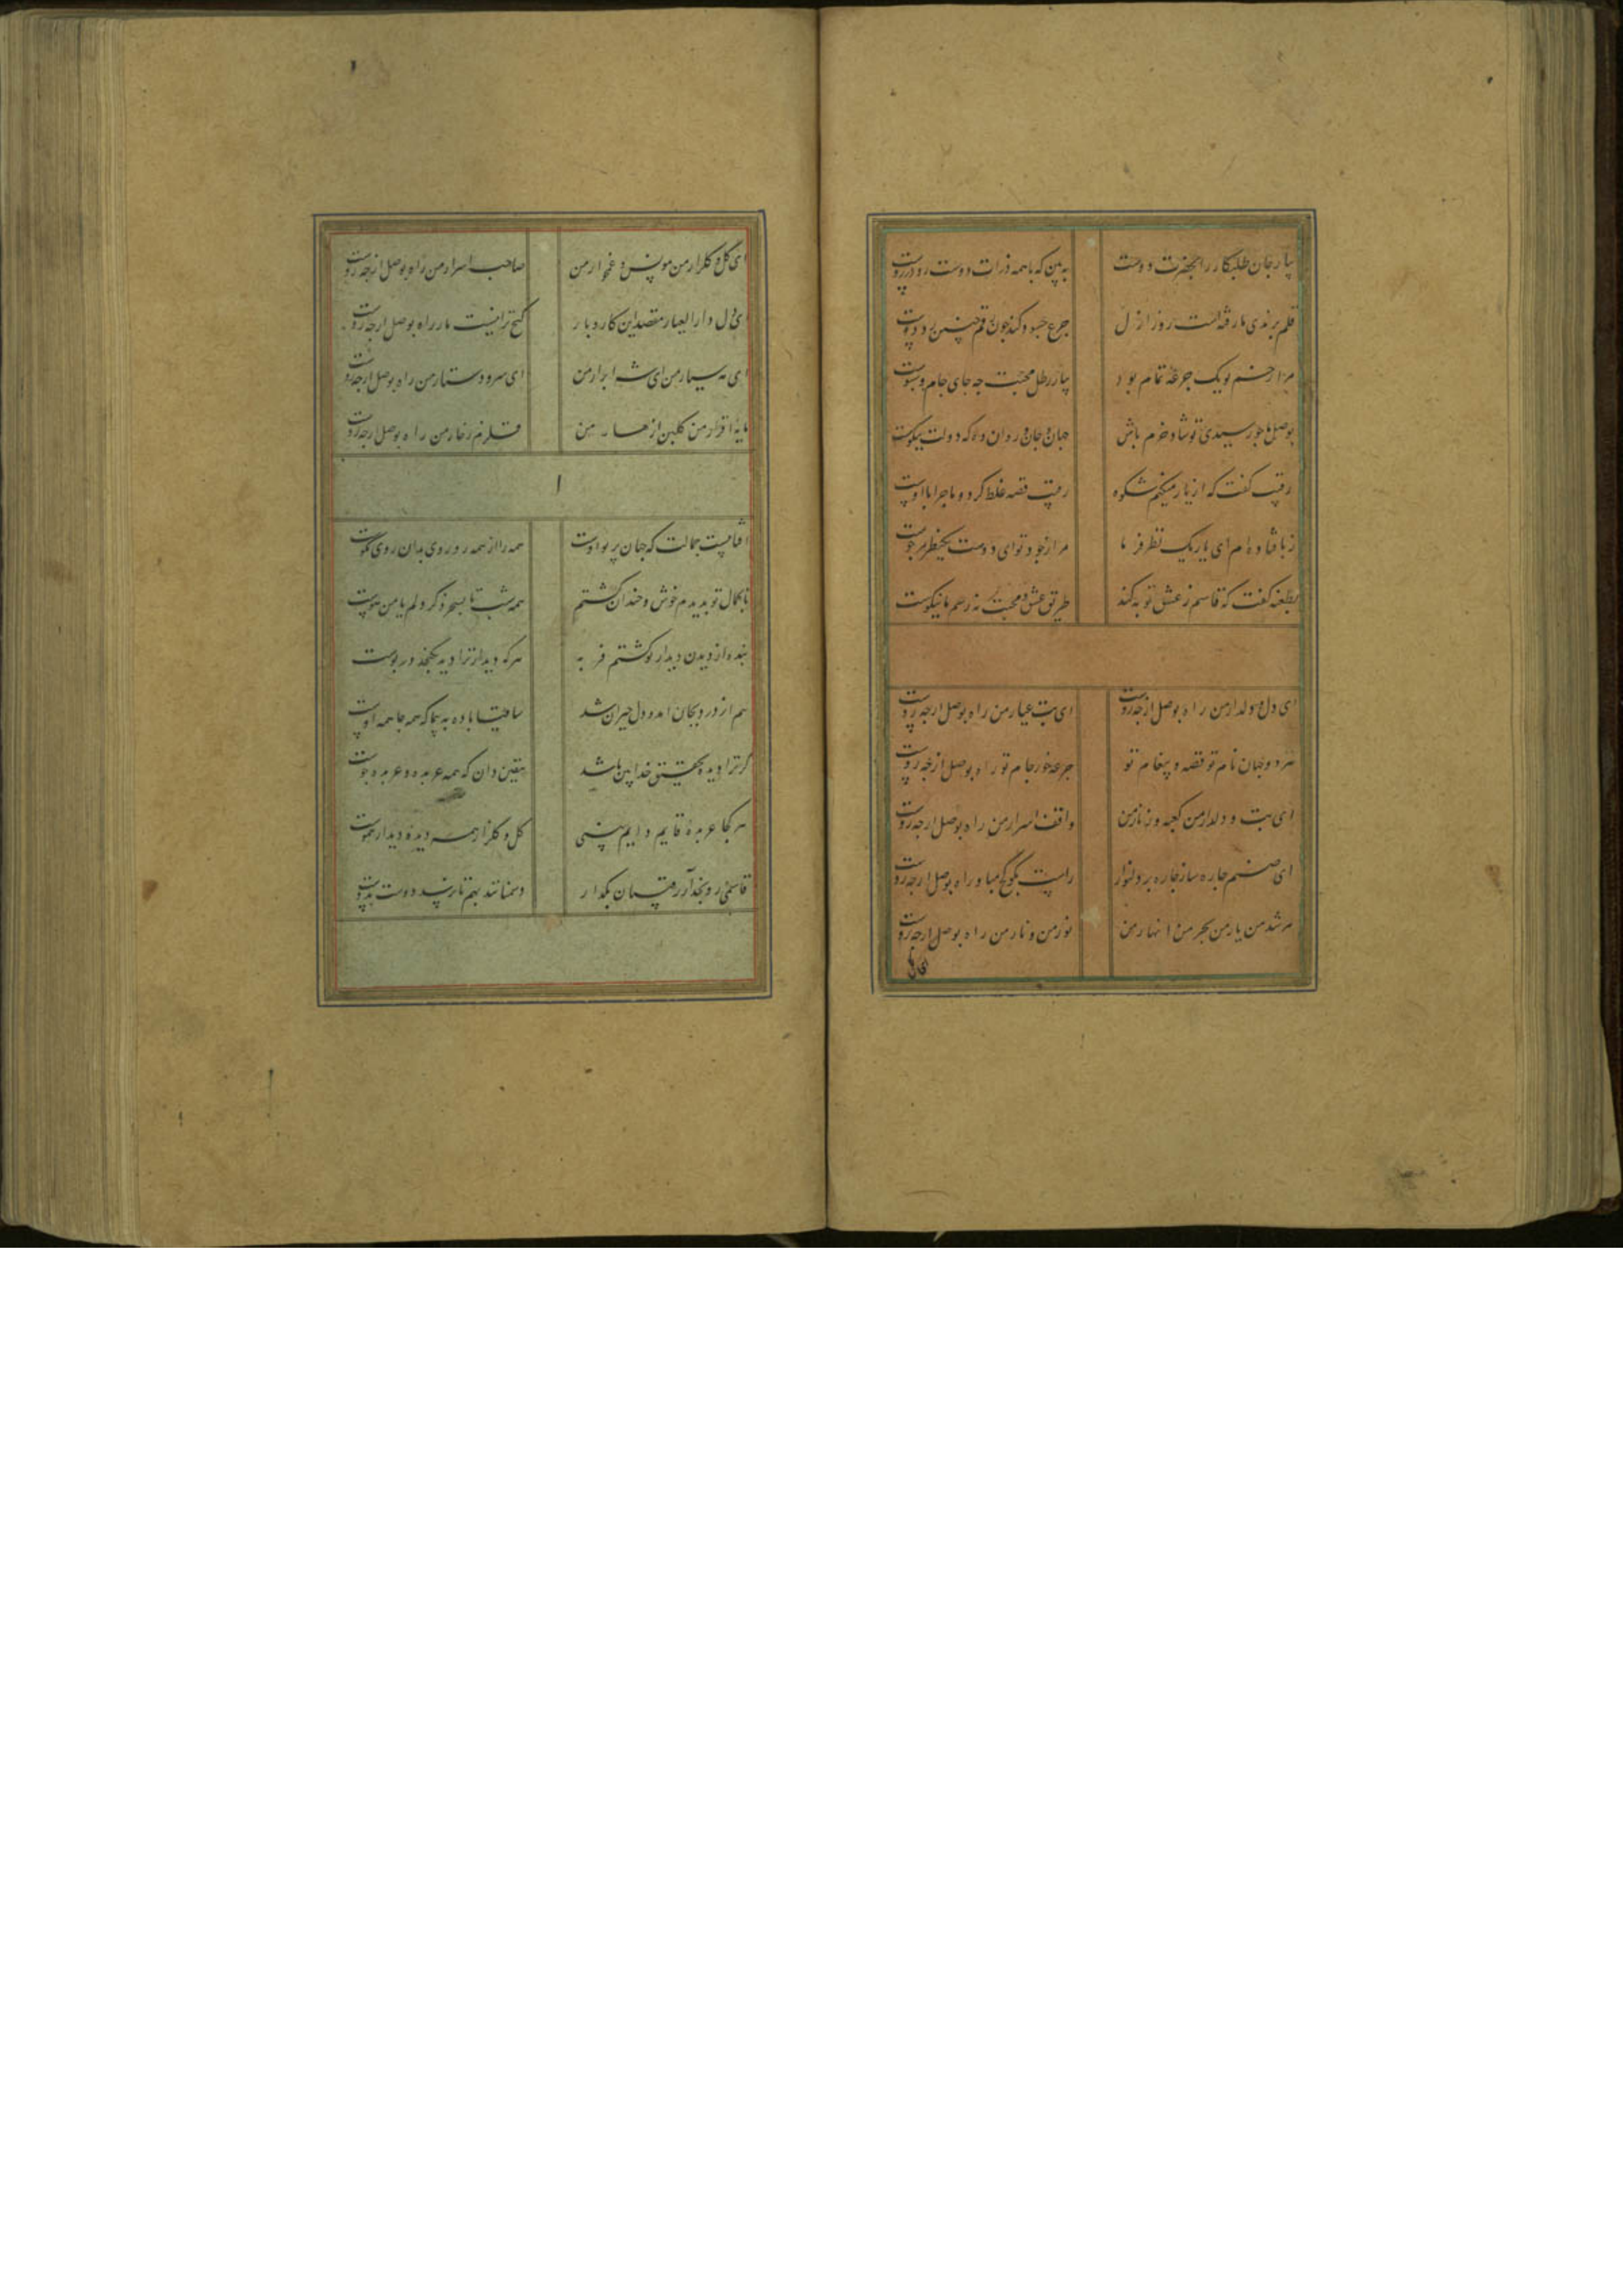 بیا رجان طلبکار را بحضرت دوست به بین که با همه ذرات دوست رو در روست
قلم برندی ما رفته است روز ازل
مرا ز خم تو یک جرعه تمام بود بیار رطل محبت چه جای جام و سبوست
بوصل ما چو رسیدی تو شاد و خرم باش جهان و جان و روان ده که دولت نیکوست
رقیب گفت که از یار میکنم شکوه رقیب قصه غلط کرد و ماجرا با اوست
ز پا فتاده ام ای یار یک نظر فرما مرا ز جود تو ای دوست یکنظر مرجوست
بطعنه گفت که قاسم ز عشق توبه کند طریق عشق و محبت نه رسم ما نیکوست
ای دل و دلدار من راه بوصل از چه روست ای بت عیار من راه بوصل از چه روست
هر دو جهان نام تو قصه و پیغام تو جرعه خور جام تو راه بوصل از چه روست
ای بت و دلدار من کعبه و زنار من واقف اسرار من راه بوصل از چه روست
ای صنم چاره ساز چاره بر دلنواز راست بگو کج مباز راه بوصل از چه روست
مرشد من یار من بحر من انهار من نور من و نار من راه بوصل از چه روست
ای گل و گلزار من مونس و غمخوار من صاحب اسرار من راه بوصل از چه روست
ای دل دار العیار مقصد این کار و بار گنج ترا نیست مار راه بوصل از چه روست
ای مه سیار من ای شه ابرار من ای سر و دستار من راه بوصل از چه روست
مایه اقرار من گلبن ازهار من قلزم زخار من راه بوصل از چه روست
آفتابیست جمالت که جهان پرتو اوست همه را از همه رو روی بدان روی نکوست
تا جمال تو بدیدم خوش و خندان گشتم همه شب تا بسحر ذکر دلم یا من هوست
بنده از دیدن دیدار تو گشتم فربه هر که دیدار ترا دید نگنجد در پوست
هم از درد بجان آمد و دل حیران شد ساقیا باده به پیما که همه جا همه اوست
گر ترا دیده تحقیق خدا بین باشد بیقین دان که همه عربده و عربده جوست
هر کجا عربده قایم و دایم بینی گل و گلزار همه دیده دیدار هموست
قاسمی رو بخدا آر رقیبان بگذار دشمنانند بهم تا نرسد دوست بدوست